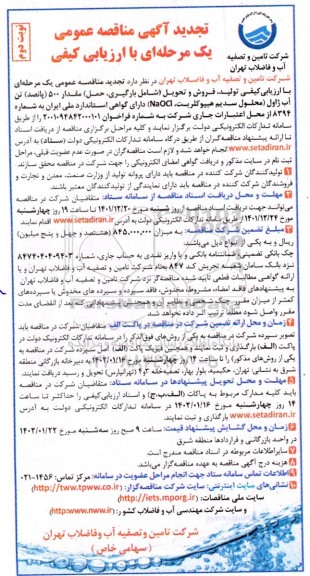 تجدید آگهی مناقصه عمومی
یک مرحله‌ای با ارزیابی کیفی
نوبت دوم
شرکت تامین و تصفیه
آب و فاضلاب تهران
شرکت تامین و تصفیه آب و فاضلاب تهران در نظر دارد تجدید مناقصه عمومی یک مرحله‌ای
با ارزیابی کیفی تولید، فروش و تحویل (شامل بارگیری، حمل) مقدار ۵۰۰ (پانصد) تن
آب ژاول (محلول سدیم هیپوکلریت، NaOCl) دارای گواهی استاندارد ملی ایران به شماره
۸۳۹۴ از محل اعتبارات جاری شرکت به شماره فراخوان ۲۰۰۱۰۹۴۸۴۲۰۰۰۱۰۱ را از طریق
سامانه تدارکات الکترونیکی دولت برگزار نماید و کلیه مراحل برگزاری مناقصه از دریافت اسناد
تا ارائه پیشنهاد مناقصه‌گران از طریق درگاه سامانه تدارکات الکترونیکی دولت (ستاد) به آدرس
www.setadiran.ir انجام خواهد شد و لازم است مناقصه‌گران در صورت عدم عضویت قبلی، مراحل
ثبت نام در سایت مذکور و دریافت گواهی امضای الکترونیکی را جهت شرکت در مناقصه محقق سازند.
۱ تولیدکنندگان شرکت کننده در مناقصه باید دارای پروانه تولید از وزارت صنعت، معدن و تجارت و
فروشندگان شرکت کننده در مناقصه باید دارای نمایندگی از تولیدکنندگان معتبر باشند.
۲ مهلت و محل دریافت اسناد مناقصه از سامانه ستاد: متقاضیان شرکت در مناقصه
می‌توانند جهت دریافت اسناد مناقصه از روز شنبه مورخ ۱۴۰۱/۱۲/۲۰ تا ساعت ۱۹ روز چهارشنبه
مورخ ۱۴۰۱/۱۲/۲۴ از طریق سامانه تدارکات الکترونیکی دولت به آدرس www.setadiran.ir اقدام نمایند.
۳ مبلغ تضمین شرکت در مناقصه: به میزان ۸۴۵،۰۰۰،۰۰۰ (هشتصد و چهل و پنج میلیون)
ریال و به یکی از انواع ذیل می‌باشد:
چک بانکی تضمینی، ضمانتنامه بانکی و یا واریز نقدی به حساب جاری، شماره
نزد بانک سامان شعبه تجریش کد ۸۴۷ بنام شرکت تامین و تصفیه آب و فاضلاب تهران و یا
ارائه گواهی مطالبات قطعی تایید شده مناقصه‌گر نزد شرکت تامین و تصفیه آب و فاضلاب تهران
به پیشنهادهای فاقد امضاء، مشروط، مخدوش، فاقد سپرده و سپرده‌های مخدوش یا سپرده‌های
کمتر از میزان مقرر، چک شخصی و نظایر آن و همچنین پیشنهاداتی که بعد از انقضای مدت
مقرر واصل شود مطلقا ترتیب اثر داده نخواهد شد.
۴ زمان و محل ارائه تضمین شرکت در مناقصه در پاکت الف: متقاضیان شرکت در مناقصه باید
تصویر سپرده شرکت در مناقصه به یکی از روش‌های فوق‌الذکر را در سامانه تدارکات الکترونیک دولت در
پاکت (الف) بارگذاری و ثبت نمایند و همچنین فیزیک پاکت (الف) اصل سپرده شرکت در مناقصه به
یکی از روش‌های مذکور) را تا ساعت ۱۴ روز چهارشنبه مورخ ۱۴۰۲/۰۱/۱۶ به دبیرخانه بازرگانی منطقه
شرق به نشانی: تهران، حکیمیه، بلوار بهار، تصفیه‌خانه ۳و۴ (تهرانپارس) تحویل و رسید دریافت نمایند.
۵ مهلت و محل تحویل پیشنهادها در سامانه ستاد: متقاضیان شرکت در مناقصه
باید کلیه مدارک مربوط به پاکات (الف،ب،ج) و اسناد ارزیابی کیفی را حداکثر تا ساعت
۱۴ روز چهارشنبه مورخ ۱۴۰۲/۰۱/۱۶ در سامانه تدارکات الکترونیکی دولت به آدرس
www.setadiran.ir بارگذاری و ثبت نمایند.
۶ زمان و محل گشایش پیشنهاد قیمت: ساعت ۹ صبح روز سه‌شنبه مورخ ۱۴۰۲/۰۱/۲۲
در واحد بازرگانی و قراردادها منطقه شرق
۷ سایر اطلاعات مربوطه در اسناد مناقصه مندرج است.
۸ هزینه درج آگهی مناقصه به عهده مناقصه‌گزار می‌باشد.
۹ اطلاعات تماس سامانه ستاد جهت انجام مراحل عضویت در سامانه: مرکز تماس: ۱۴۵۶-۰۲۱
۱۰ نشانی‌های سایت اینترنتی: سایت شرکت مناقصه‌گزار: (http://www.tpww.co.ir)
سایت ملی مناقصات: (http://iets.mporg.ir)
و سایت شرکت مهندسی آب و فاضلاب کشور: (http:www.nww.ir)
شرکت تامین و تصفیه آب و فاضلاب تهران
(سهامی خاص)